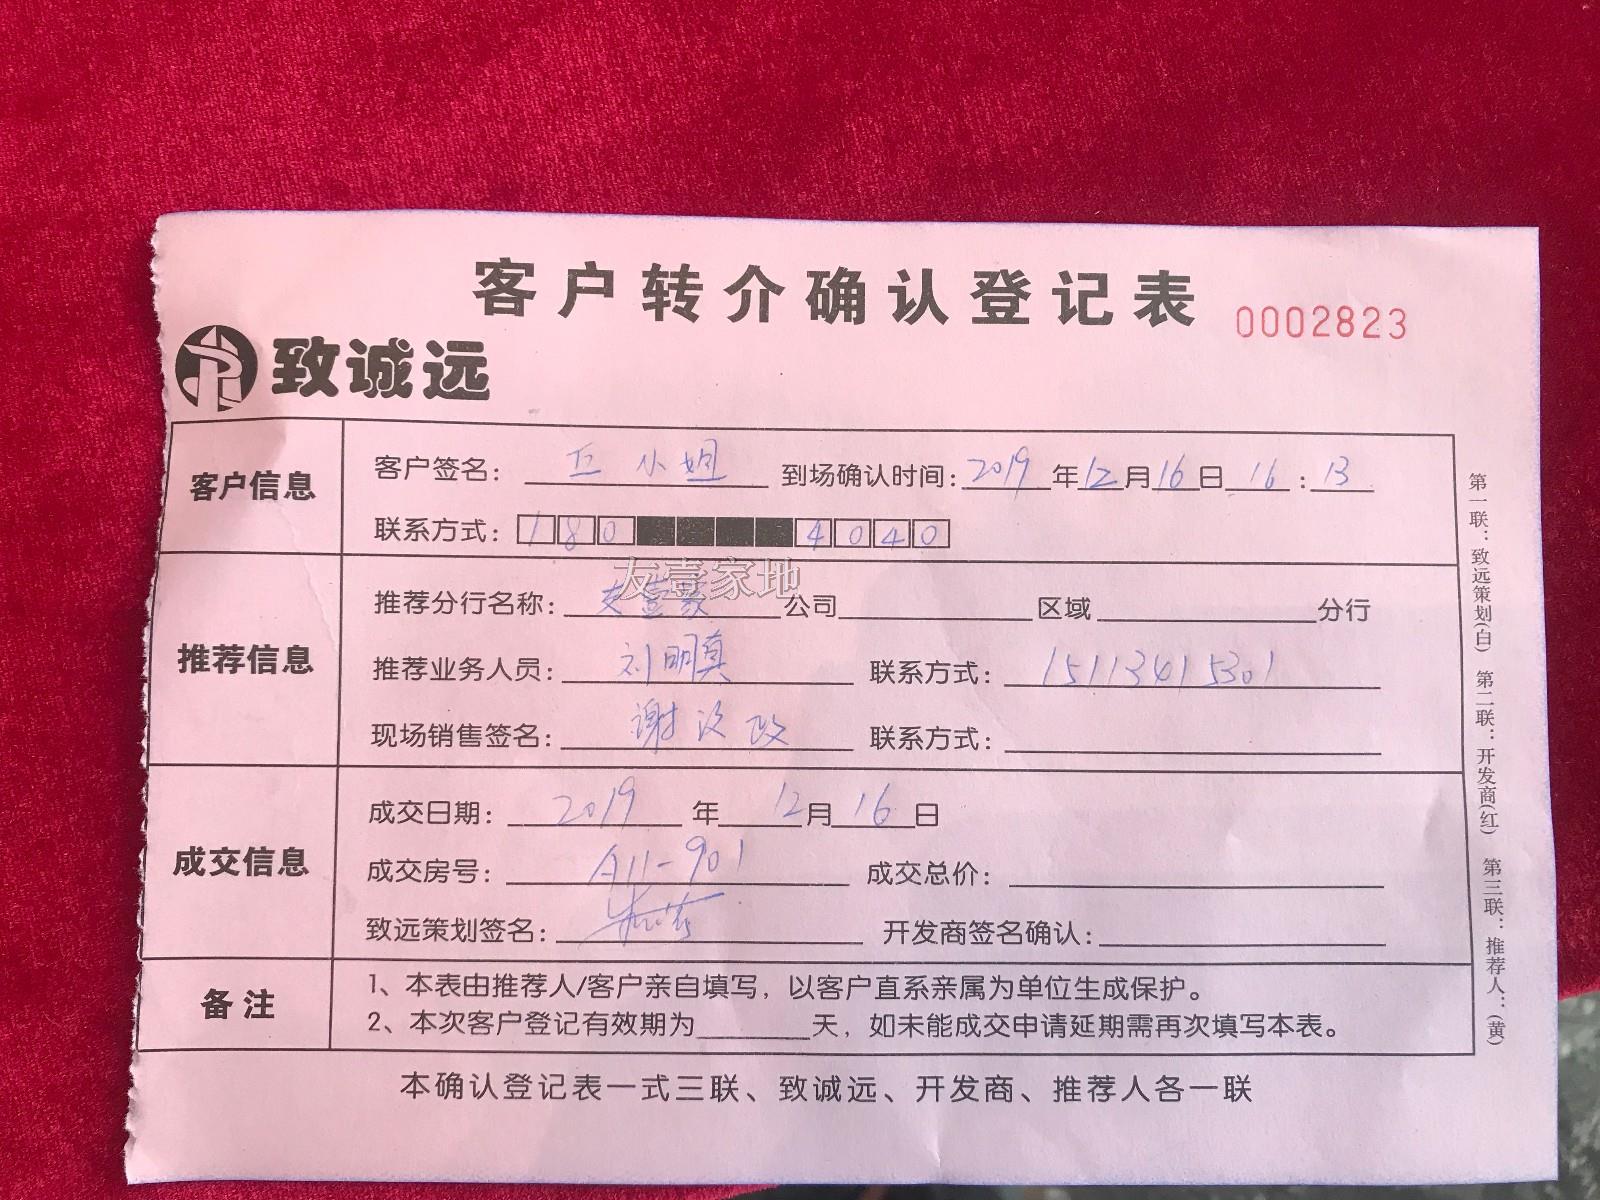 客户转介确认登记表 0002823
致诚远
客户信息
客户签名: 丘小姐 到场确认时间:2019年12月16日16:13
联系方式: 180 4040
友壹家地
推荐信息
推荐分行名称: 友壹家 公司 区域 分行
推荐业务人员: 刘明真 联系方式: 15113415301
现场销售签名: 谢 联系方式:
成交信息
成交日期: 2019 年 12月16日
成交房号: A11-901 成交总价:
致远策划签名: 开发商签名确认:
备注
1、本表由推荐人/客户亲自填写，以客户直系亲属为单位生成保护。
2、本次客户登记有效期为 天，如未能成交申请延期需再次填写本表。
本确认登记表一式三联、致诚远、开发商、推荐人各一联
第一联：致远策划(白) 第二联：开发商(红) 第三联：推荐人：(黄)